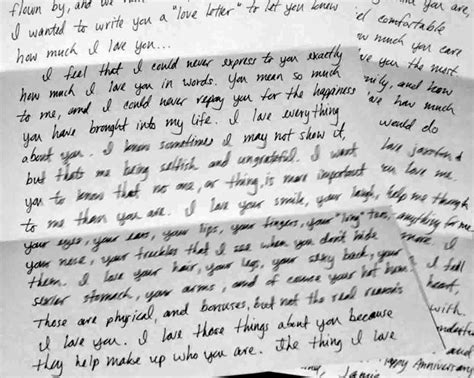 flown by, and we
I wanted to write you a "love letter" to let you know
how much I love you...
I feel that I could never express to you exactly
how much I love you in words. You mean so much
to me, and I could never repay you for the happiness
you have brought into my life. I love everything
about you. I know sometimes I may not show it,
but thats me being selfish and ungrateful. I want
you to know that no one, or thing, is more important
to me than you are. I love your smile, your laugh,
your eyes, your ears, your lips, your fingers, your "ling" toes,
your nose, your freckles that I see when you don't hide
them. I love your hair, your legs, your sexy back, your
stomach, your arms, and of couse your hot
Those are physical, and bonuses, but not the real reasons
I love you. I love those things about you because
they help make up who you are. The thing I love
you are
comfortable
you care
you the most
and how
how much
would do
love
love me.
help me though
anything for me.
more. I
fall
heart,
with.
and
Happy Anniversary
Jamie